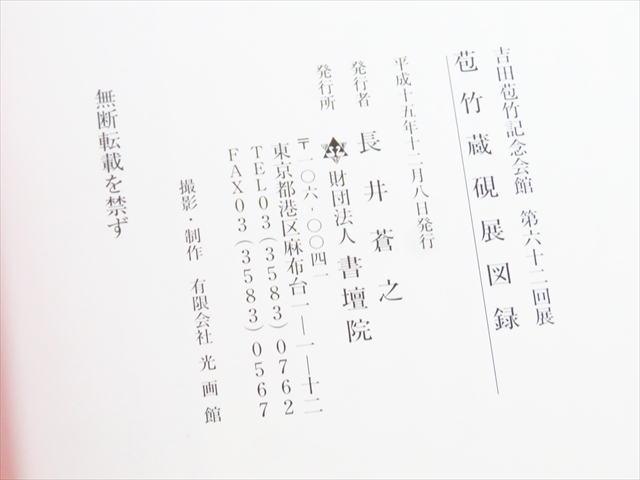 吉田苞竹記念会館　第六十二回展
苞竹蔵硯展図録
平成十五年十二月八日発行
発行者　長井蒼之
発行所　財団法人　書壇院
〒一〇六・〇〇四一
東京都港区麻布台一―一―十二
TEL03(3583)0762
FAX03(3583)0567
撮影・制作　有限会社　光画館
無断転載を禁ず